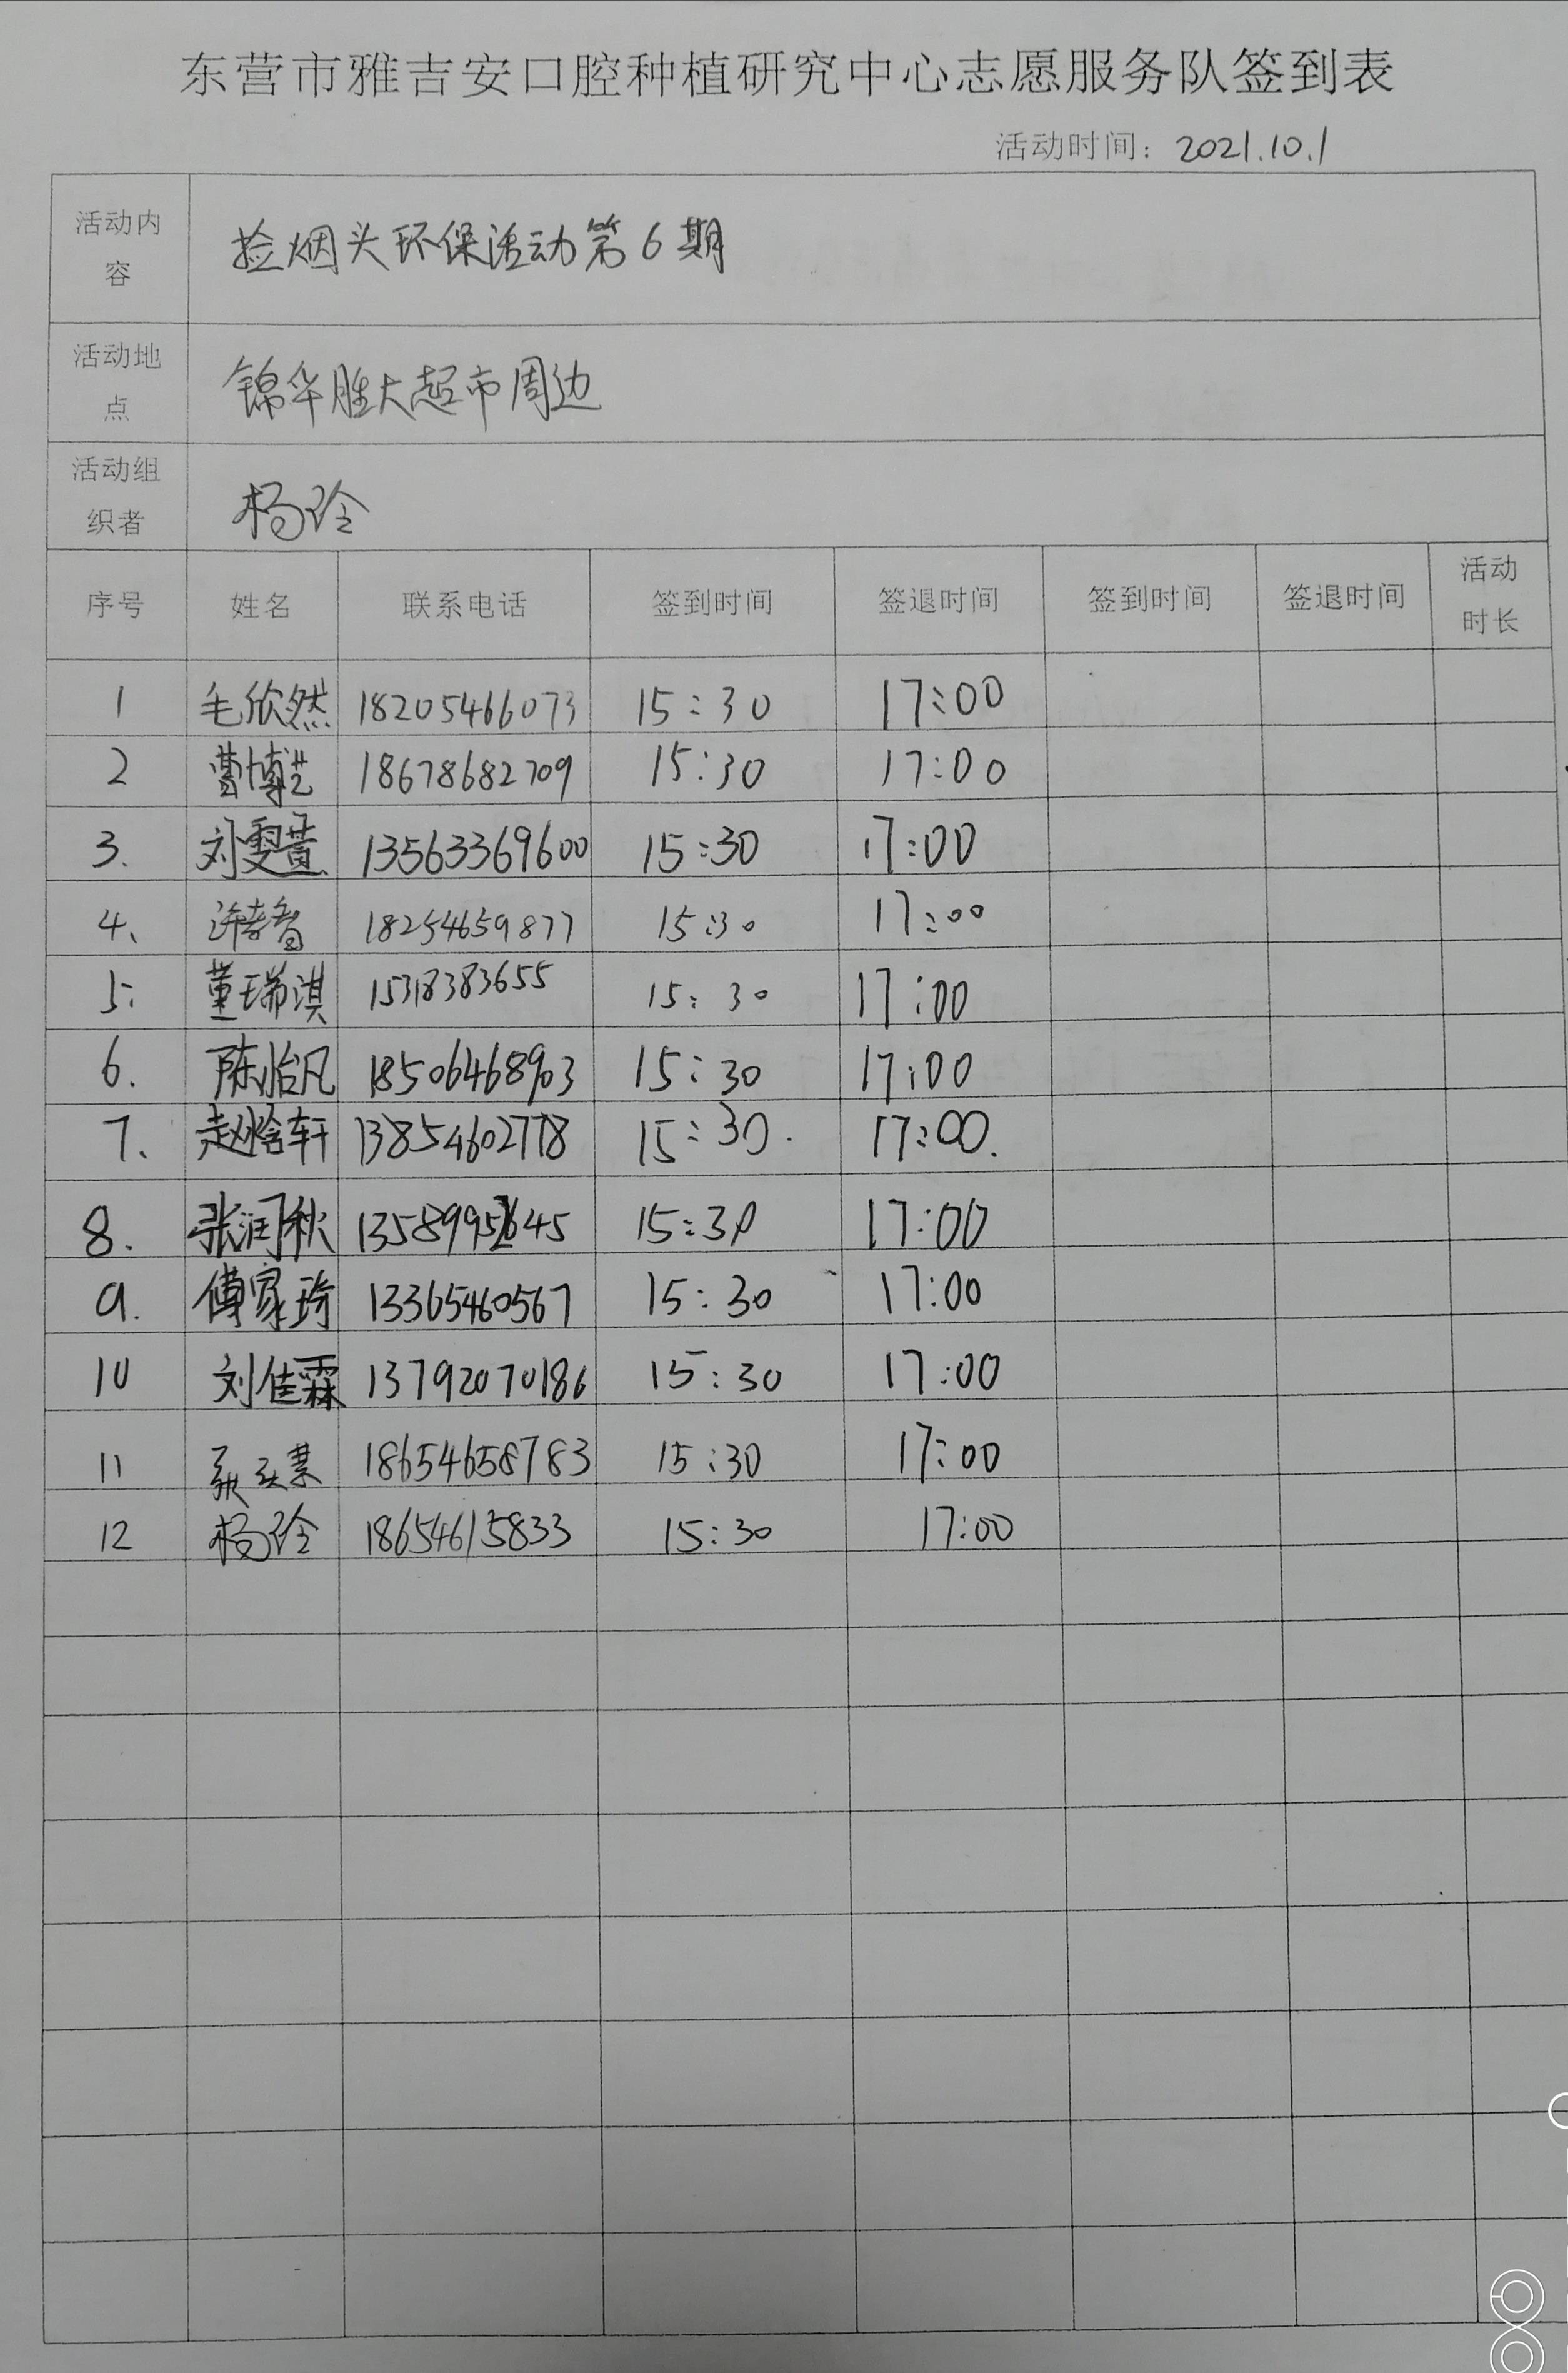 东营市雅吉安口腔种植研究中心志愿服务队签到表
活动时间：2021.10.1
活动内容 捡烟头环保活动第6期
活动地点 锦华胜大超市周边
活动组织者 杨玲
序号 姓名 联系电话 签到时间 签退时间 签到时间 签退时间 活动时长
1 毛欣然 18205466073 15:30 17:00
2 曹博艺 18678682709 15:30 17:00
3. 刘雯萱 13563369600 15:30 17:00
4、 许孝智 18254659877 15:30 17:00
5. 董瑞淇 15318383655 15:30 17:00
6. 陈怡凡 18506468903 15:30 17:00
7. 赵晗轩 13854602778 15:30. 17:00.
8. 张润秋 135899 645 15:30 17:00
9. 傅家琦 13365460567 15:30 17:00
10 刘佳霖 13792070186 15:30 17:00
11 18654658783 15:30 17:00
12 杨玲 18654615833 15:30 17:00